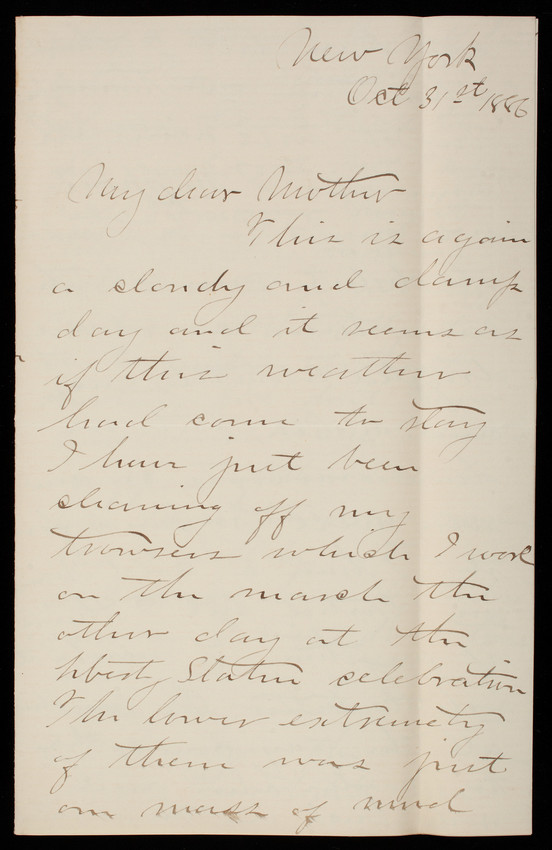 New York
Oct 31st 1886
My dear Mother
This is again
a cloudy and damp
day and it seems as
if this weather
had come to stay
I have just been
cleaning off my
trowsers which I wore
on the march the
other day at the
liberty Statue celebration
The lower extremety
of them was just
one mass of mud